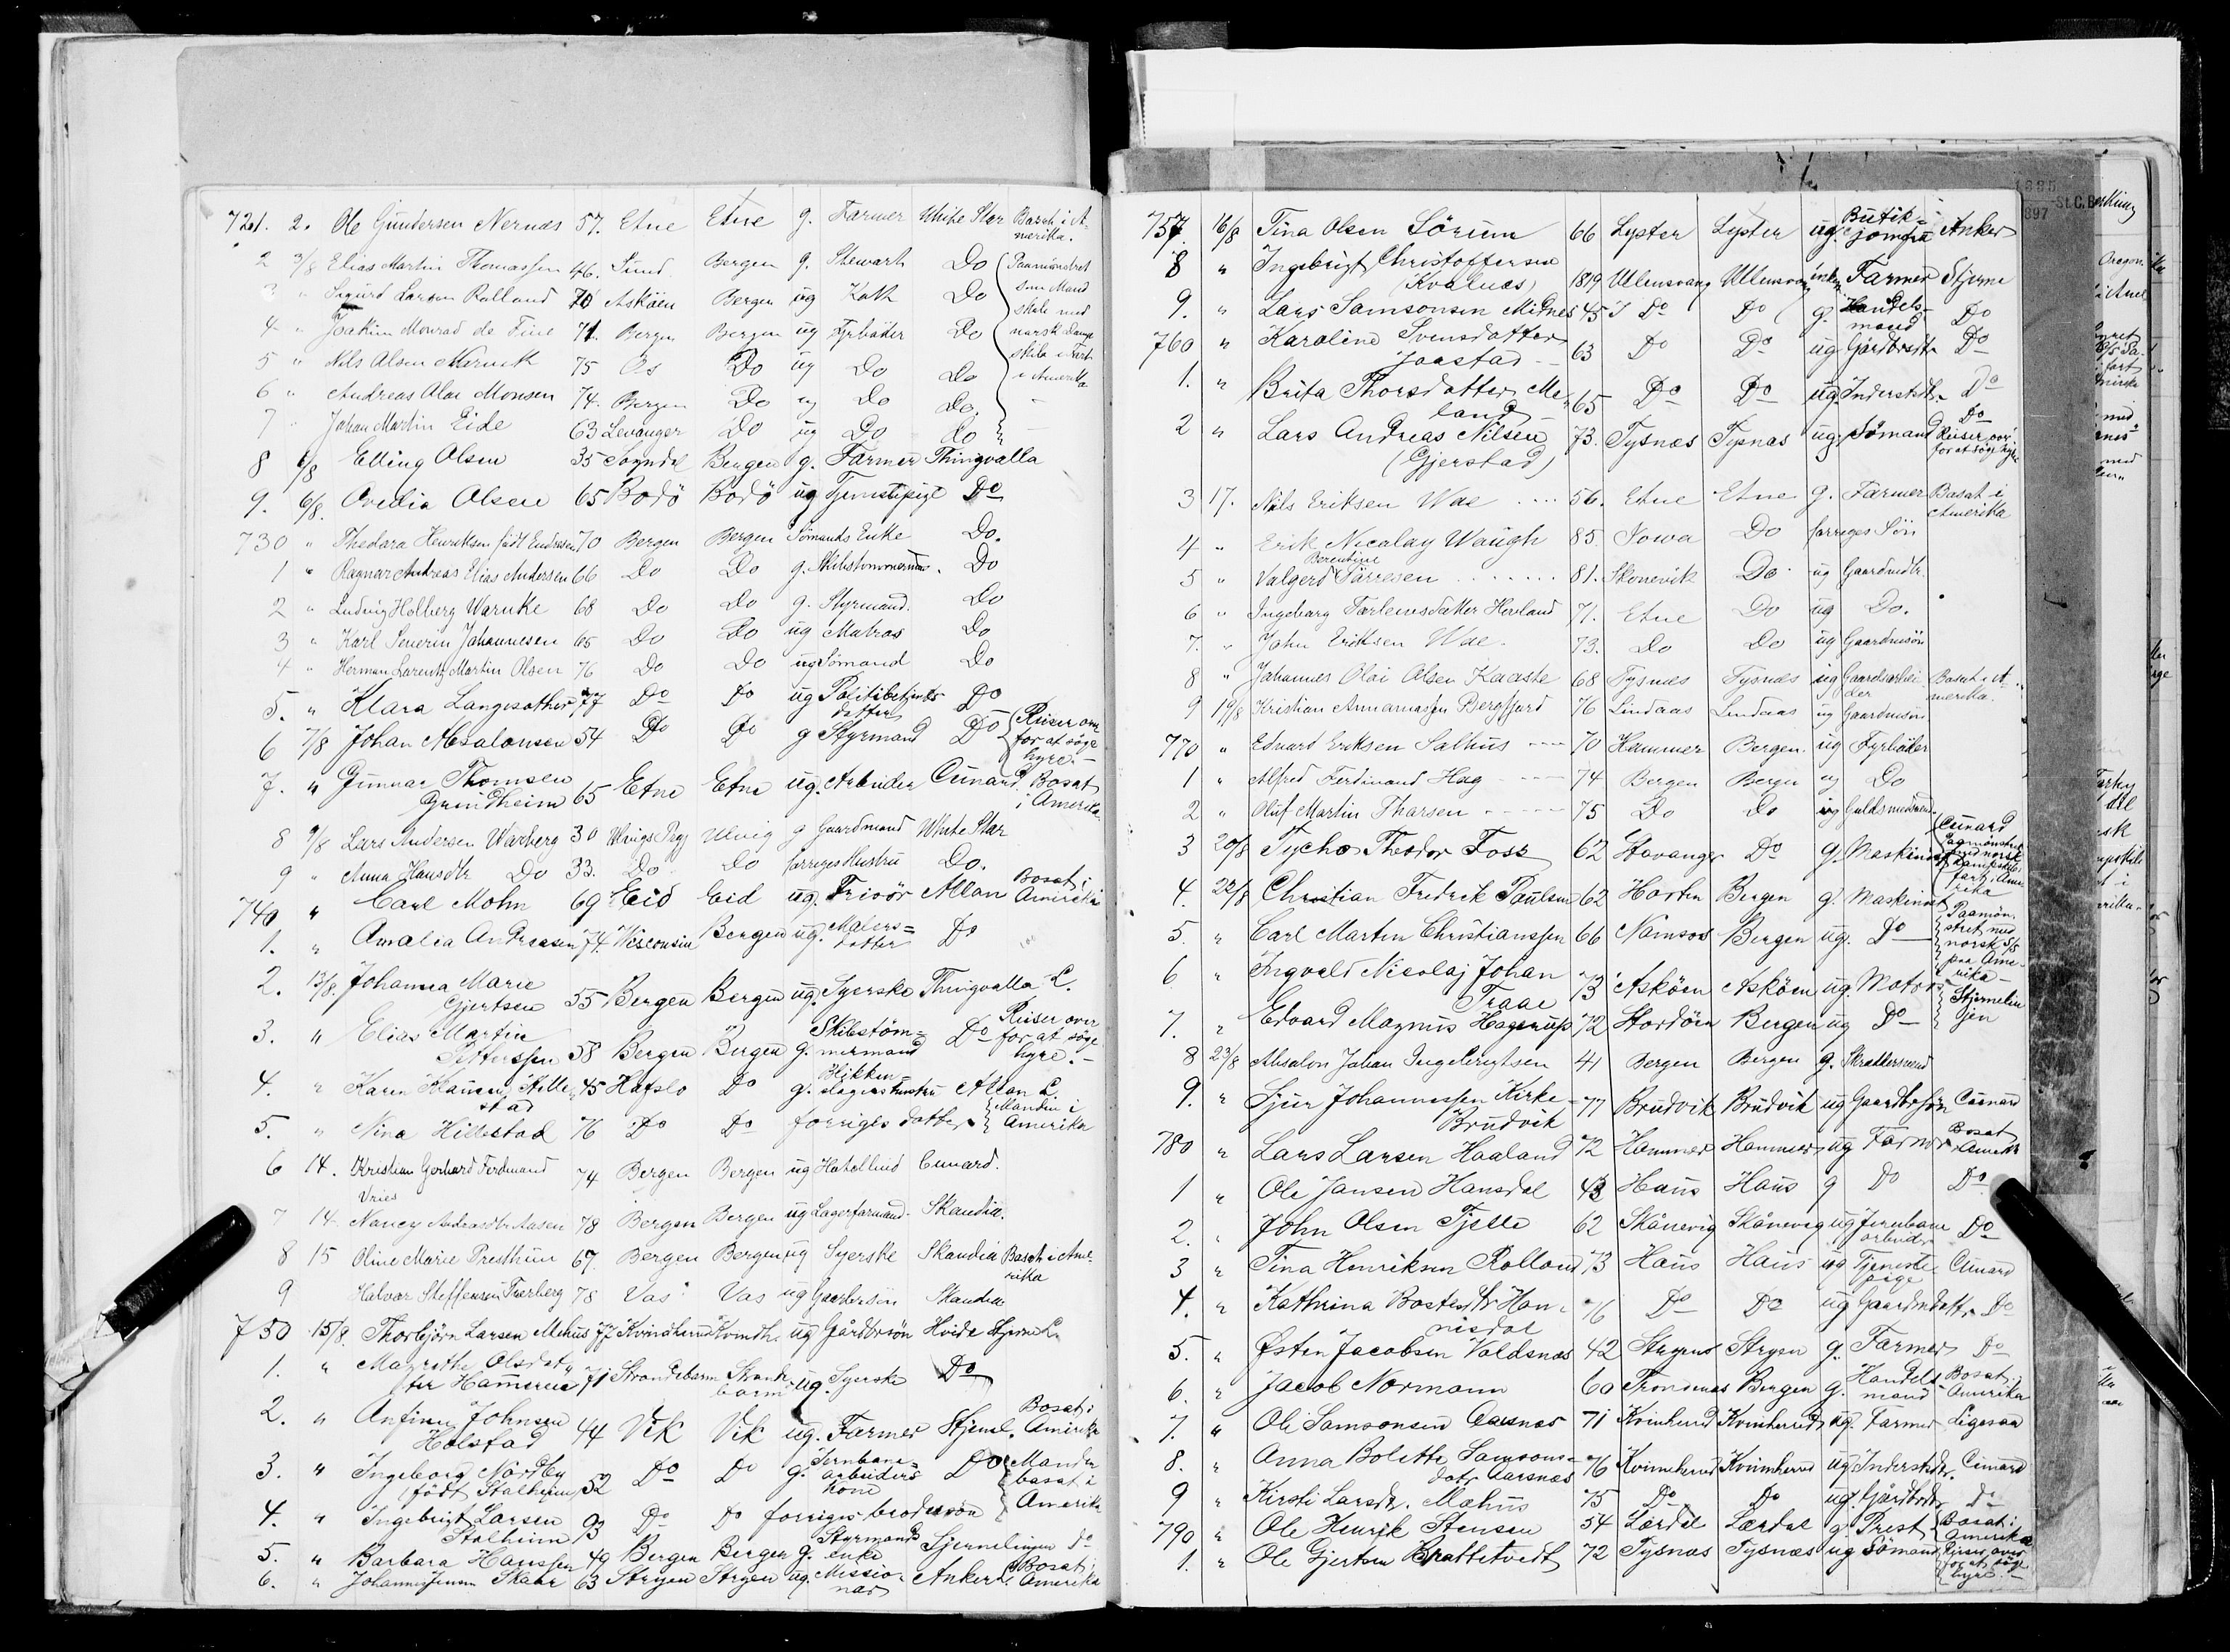 721. 2. Ole Gundersen Nernæs 57. Etne Etne g. Farmer White Star Bosat i A-
merika.
2 3/8 Elias Martin Thomassen 46. Sund Bergen g. Stewart Do Paamønstret
3 " Sigurd Larsen Rolland 70 Askøen Bergen ug Kok Do som Mand
skab med
4 " Joakim Monrad de Fine 71. Bergen Bergen ug Fyrbøder Do norsk Damp
skib i Fart
5 " Nils Olsen Næruik 75 Os Do ug Do Do i Amerika
6 " Andreas Olai Monsen 74. Bergen Do ug Do Do.
7 " Johan Martin Eide 63 Levanger Do ug Do Do
8 6/8 Elling Olsen 35 Sogndal Bergen g. Farmer Thingvalla
9. 6/8. Ovidia Olsen 65 Bodö Bodö ug Tjenestepige Do
730 " Thedora Henriksen født Endresen 70 Bergen Bergen Sömands Enke Do.
1 " Ragnar Andreas Elias Andersen 66 Do Do g. Skibstømmermd. Do
2 " Ludvig Holberg Warnke 68 Do Do g. Styrmand. Do
3 " Karl Severin Johannesen 65 Do Do ug Matros Do
4 " Herman Lorentz Martin Olsen 76 Do Do ug Sömand Do
5. " Klara Langesæther 77 Do Do ug Politibetjents Do
datter
6 7/8 Johan Absalonsen 54 Do Do g Styrmand Do Reiser over
for at söge
hyre.
7. " Gunnar Thomsen
Grindheim 65 Etne Etne ug. Arbeider Cunard. Bosat
i Amerika.
8 9/8 Lars Andersen Warberg 30 Ulvigs Pgj Ulvig g Gaardmand White Star
9 " Anna Hansdtr Do 33. Do Do forriges Hustru Do.
740 " Carl Mohn 69 Eid Eid ug. Frisör Allan Bosat i
Amerika
1. " Amalia Andreasen 74. Wisconsin Bergen ug. Malers= Do
datter
2. 13/8. Johanna Marie
Gjertsen 55 Bergen Bergen ug. Syerske Thingvalla L.
3. " Elias Martin
Pettersen 58 Bergen Bergen g. Skibstöm=
mermand Do Reiser over
for at söge
hyre.-
4. " Karen Klausen Hille
stad 45 Hafslo Do g. Blikken=
slagers hustru Allan L.
5. " Nina Hillestad 76 Do Do forriges datter Manden i
Amerika
6 14. Kristian Gerhard Ferdinand
Vries 74 Bergen Bergen ug Hotelbud Cunard.
7 14. Nancy Andreasdtr Aasen 78 Bergen Bergen ug Lagerformand. Skandia.
8 15 Oline Marie Presthun 67. Bergen Bergen ug Syerske Skandia Bosat i Ame-
rika
9 Halvor Steffensen Tverberg 78 Vos Vos ug Gaardbrsön Skandia
750 15/8. Thorbjörn Larsen Mehus 77 Kvindherred Kvindh. ug Gårdbrsön Hvide Stjerne L.
1. " Magrethe Olsdat-
ter Hammerie 71 Strandebarm Strande
barm ug. Syerske Do
2. " Anfinn Johnsen
Holstad 44 Vik Vik ug. Farmer Stjernel. Bosat i
Amerika
3. " Ingeborg Nordby
født Stalheim 52 Do Do g. Jernbane=
arbeiders
kone Do Manden
bosat i
Amerika
4. " Ingebrigt Larsen
Stalheim 93 Do Do forriges brodersön
5. " Barbara Hanssen 49 Bergen Bergen g. Styrmands
enke Stjernelinjen Do
6. " Johannes Jensen Skaar 63 Stryen Stryen ug. Missio-
nær Ankerl. Bosat i
Amerika
757. 16/8 Tina Olsen Sörum 66 Lyster Lyster ug. Butik=
jomfru Anker
8 " Ingebrigt Christoffersen
(Kvalnes) 1819 Ullensvang Ullensvang enkem Farmer Stjerne
9. " Lars Samsonsen Midnes 45 Do Do g. Handels-
mand Do
760 " Karoline Svensdatter
Jaastad - 63 Do Do ug Gårdbrdtr Do
1. " Brita Thorsdatter Me-
land - 65 Do Do ug. Inderstdtr. Do
2 " Lars Andreas Nilsen
(Gjerstad) 73. Tysnæs Tysnæs ug Sömand Do
Reiser over
for at söge hyre
3 17. Nils Eriksen Wae .... 56. Etne Etne g. Farmer Bosat i
Amerika
4 " Erik Nicolay Waugh 85. Iowa Do forriges Sön
5 " Valgerd Berentine Sörresen ....... 81. Skonevik Do ug Gaardmdtr.
6 " Ingeborg Torleivsdatter Hovland 71. Etne Do ug Do.
7. " John Eriksen Wae. 73. Do Do ug Gaardmsön
8 " Johannes Olai Olsen Kaaste 68 Tysnes Tysnæs ug Gaardsarbei
der Bosat i A-
merika
9 19/8 Kristian Annanassen Bergfjord 76 Lindaas Lindaas ug Gaardmsön
770 " Edvard Eriksen Salhus ---- 70 Hammer Bergen. ug Fyrbøder
1 " Alfred Ferdinand Hag - --- 74 Bergen Bergen ug Do
2 " Oluf Martin Tharsen - --- 75 Do Do ug Guldsmedsvend.
3 20/8 Tycho Theodor Foss 62 Stavanger Do g. Maskinist Cunard
Paamönstret
med norsk
dampskib i
fart i Ame
rika
4. 22/8 Christian Fredrik Paulsen 62 Horten Bergen g. Maskinist
5. " Carl Martin Christianssen 66 Namsos Bergen ug. Do Paamön-
stret med
norsk S/S
paa Ame-
rika -
6 " Ingvald Nicolaj Johan
Traae 73 Askøen Askøen ug. Motors
7. " Edvard Magnus Hagerup 72 Stordøen Bergen ug Do Stjernelin
jen
8 23/8 Absalon Johan Ingebrigtsen 41 Bergen Bergen g. Skræddersvend
9. " Sjur Johannessen Kirke-
Brudvik 77 Brudvik Brudvik ug Gaardbrsön Cunard
780 " Lars Larsen Haaland 72 Hammer Hammer ug Farmer Bosat
i Amerika
1 " Ole Jansen Hansdal 43 Haus Haus g Do Do
2. " John Olsen Tjelle 62 Skånevig Skånevig ug Jernbane
arbeider Do
3 " Tina Henriksen Rolland 73 Haus Haus ug Tjeneste
pige Cunard
4. " Kathrina Bostesdtr Han-
nisdal 76 Do Do ug Gaardmdatt. Do
5. " Østen Jacobsen Valdsnæs 42 Stryens Stryen g. Farmer Do
6. " Jacob Normann 60 Trondenæs Bergen g. Handels-
mand Bosat i
Amerika
7. " Ole Samsonsen Aarsnæs 71 Kvinherred Kvinherred ug. Farmer Ligesaa
8. " Anna Bolette Samsons=
datr Aarsnæs 76 Kvinneherred Kvinnherred ug Inderstdtr. Cunard
9 " Kirsti Larsdr. Mæhus 75 Do Do ug. Gårdbrdr Do
790 " Ole Henrik Stensen 54 Lærdal Lærdal g. Prest Bosat i
Amerika
1. " Ole Gjertsen Brattetvedt 72 Tysnæs Tysnæs ug Sömand Reiser over
for at söge
hyre.-
1885
1897
St. C. B
Oregon